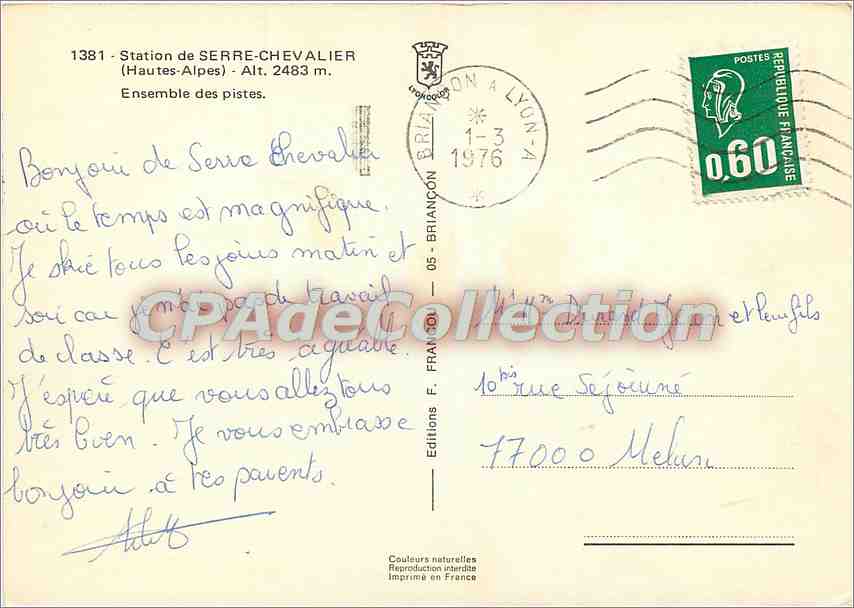 1381 - Station de SERRE-CHEVALIER
(Hautes-Alpes) - Alt. 2483 m.
Ensemble des pistes.
LYONCOLOR
BRIANÇON A LYON-A
1-3
1976
POSTES
REPUBLIQUE FRANÇAISE
0,60
Bonjour de Serre Chevalier
où le temps est magnifique.
Je skie tous les jours matin et
soir car je n'ai pas de travail
de classe. C'est très agréable.
J'espère que vous allez tous
très bien. Je vous embrasse
bonjour à tes parents.
Editions F. FRANGOU - 05 - BRIANÇON
CPAdeCollection
Mr Mme Durand et leur fils
10 bis rue Séjourné
77000 Melun
Couleurs naturelles
Reproduction interdite
Imprimé en France